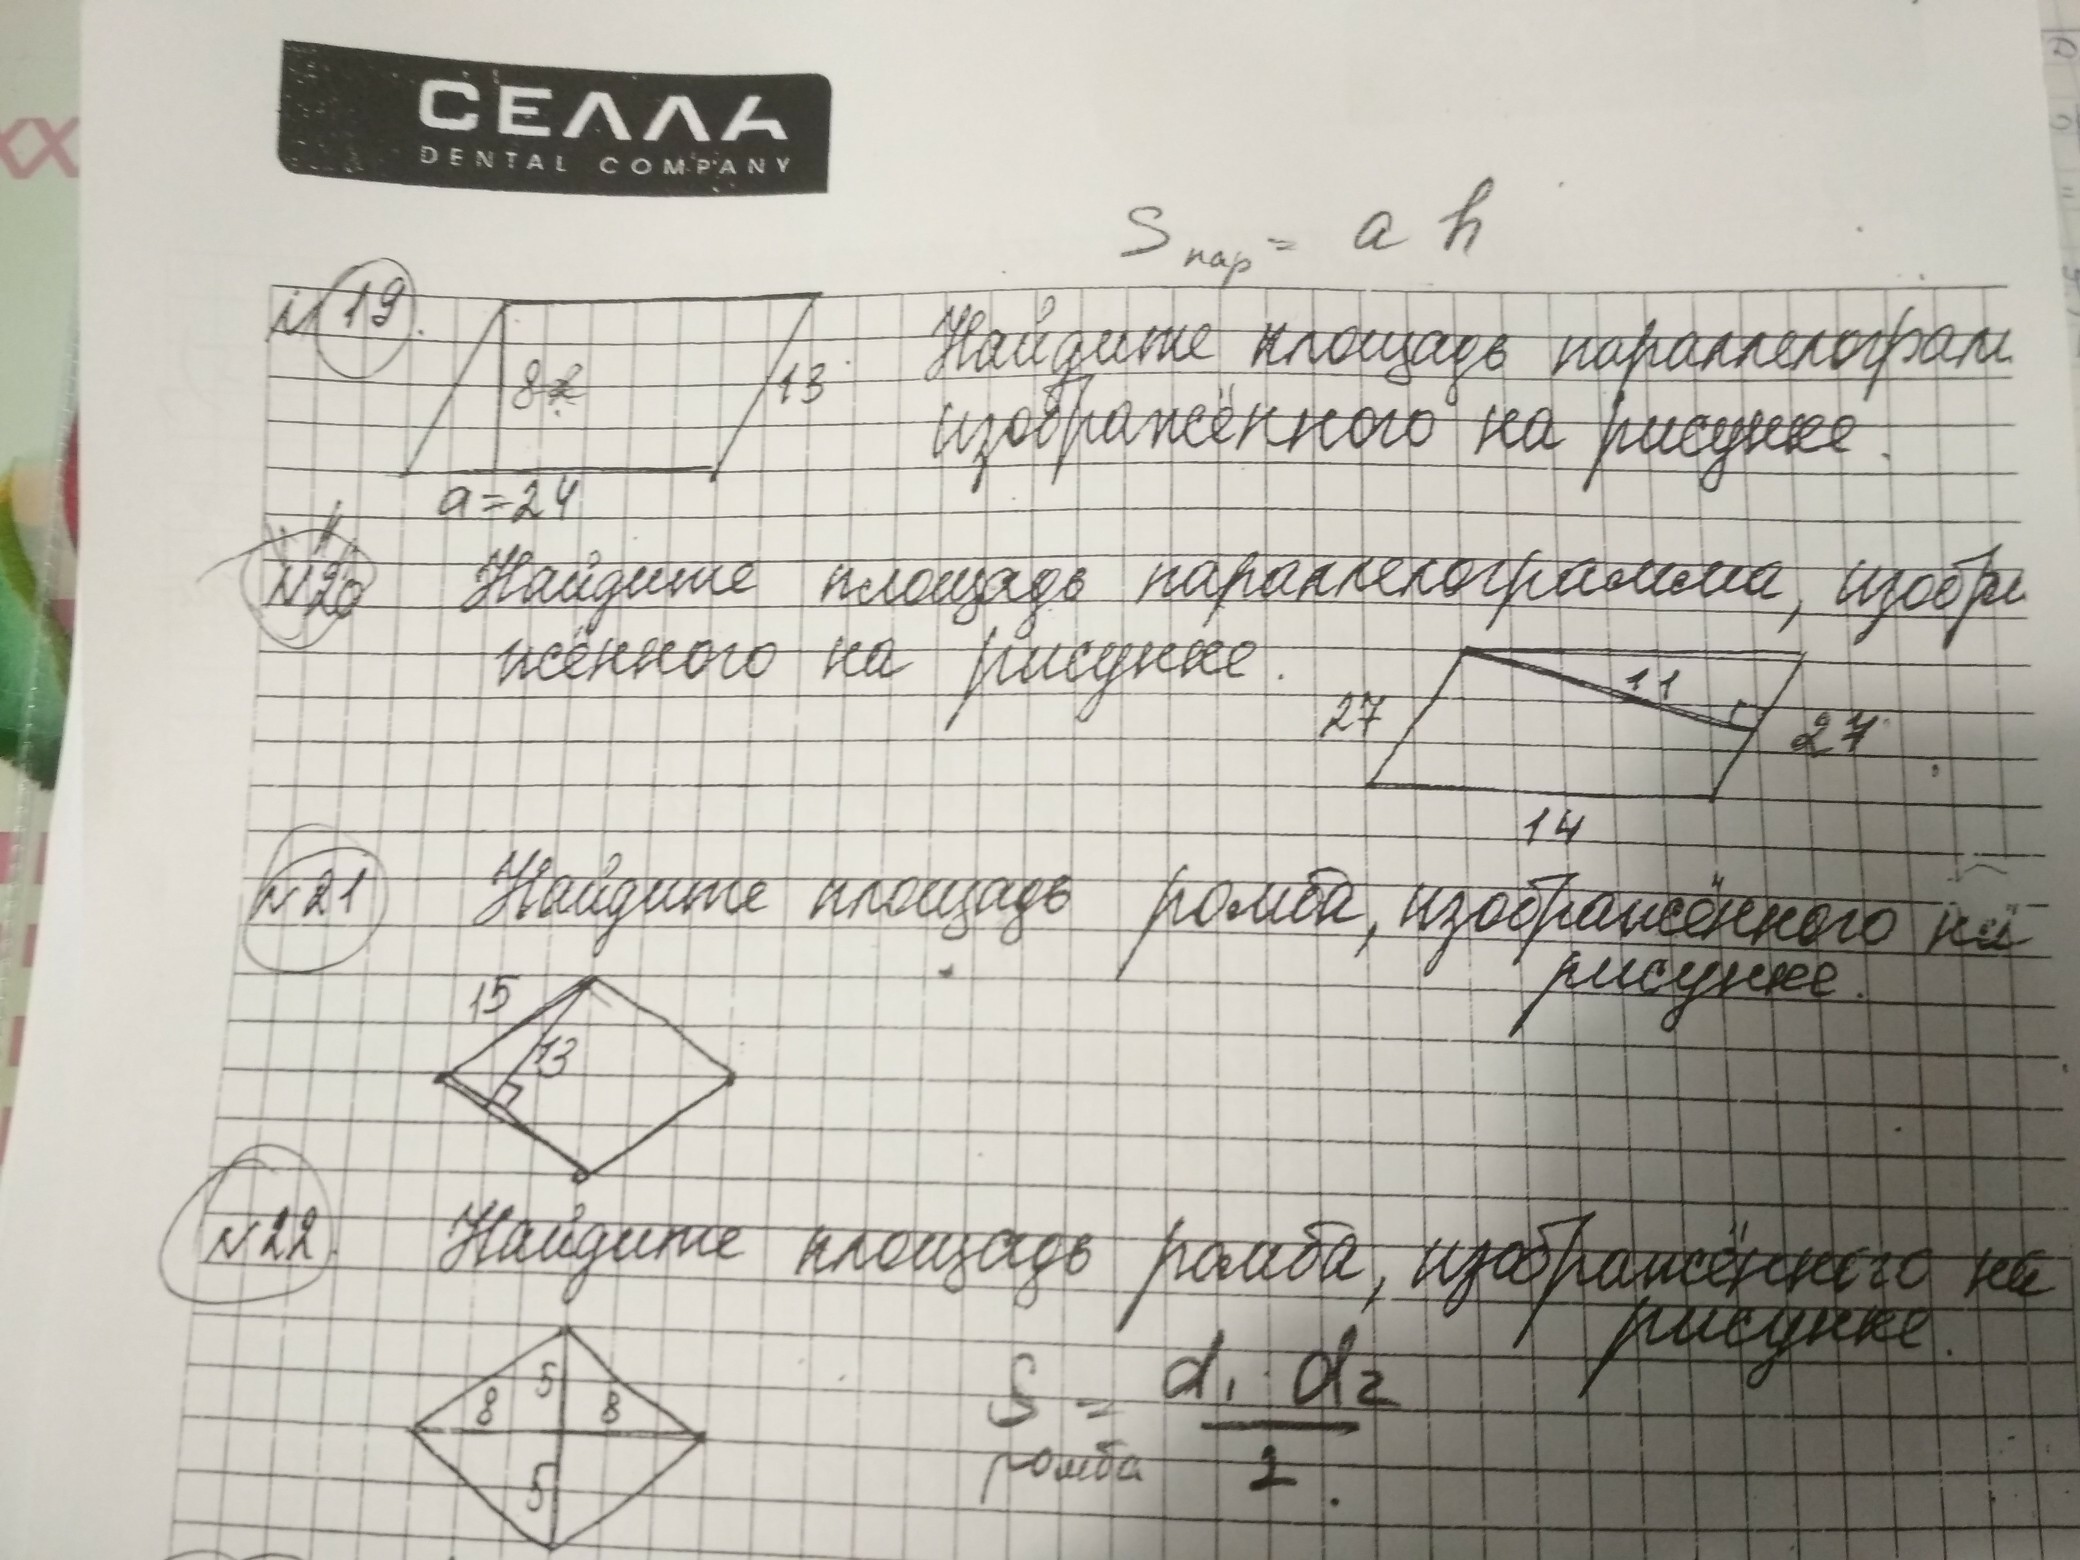 СЕЛЛА
DENTAL COMPANY
S пар = a h
N 19.
8
13
a = 24
Найдите площадь параллелограм
изображённого на рисунке.
N20
Найдите площадь параллелограмма, изобра
жённого на рисунке.
27
11
27
14
N21
Найдите площадь ромба, изображённого на
рисунке.
15
13
N22.
Найдите площадь ромба, изображённого на
рисунке.
5
8 8
5
S ромба = d1 · d2 / 2.